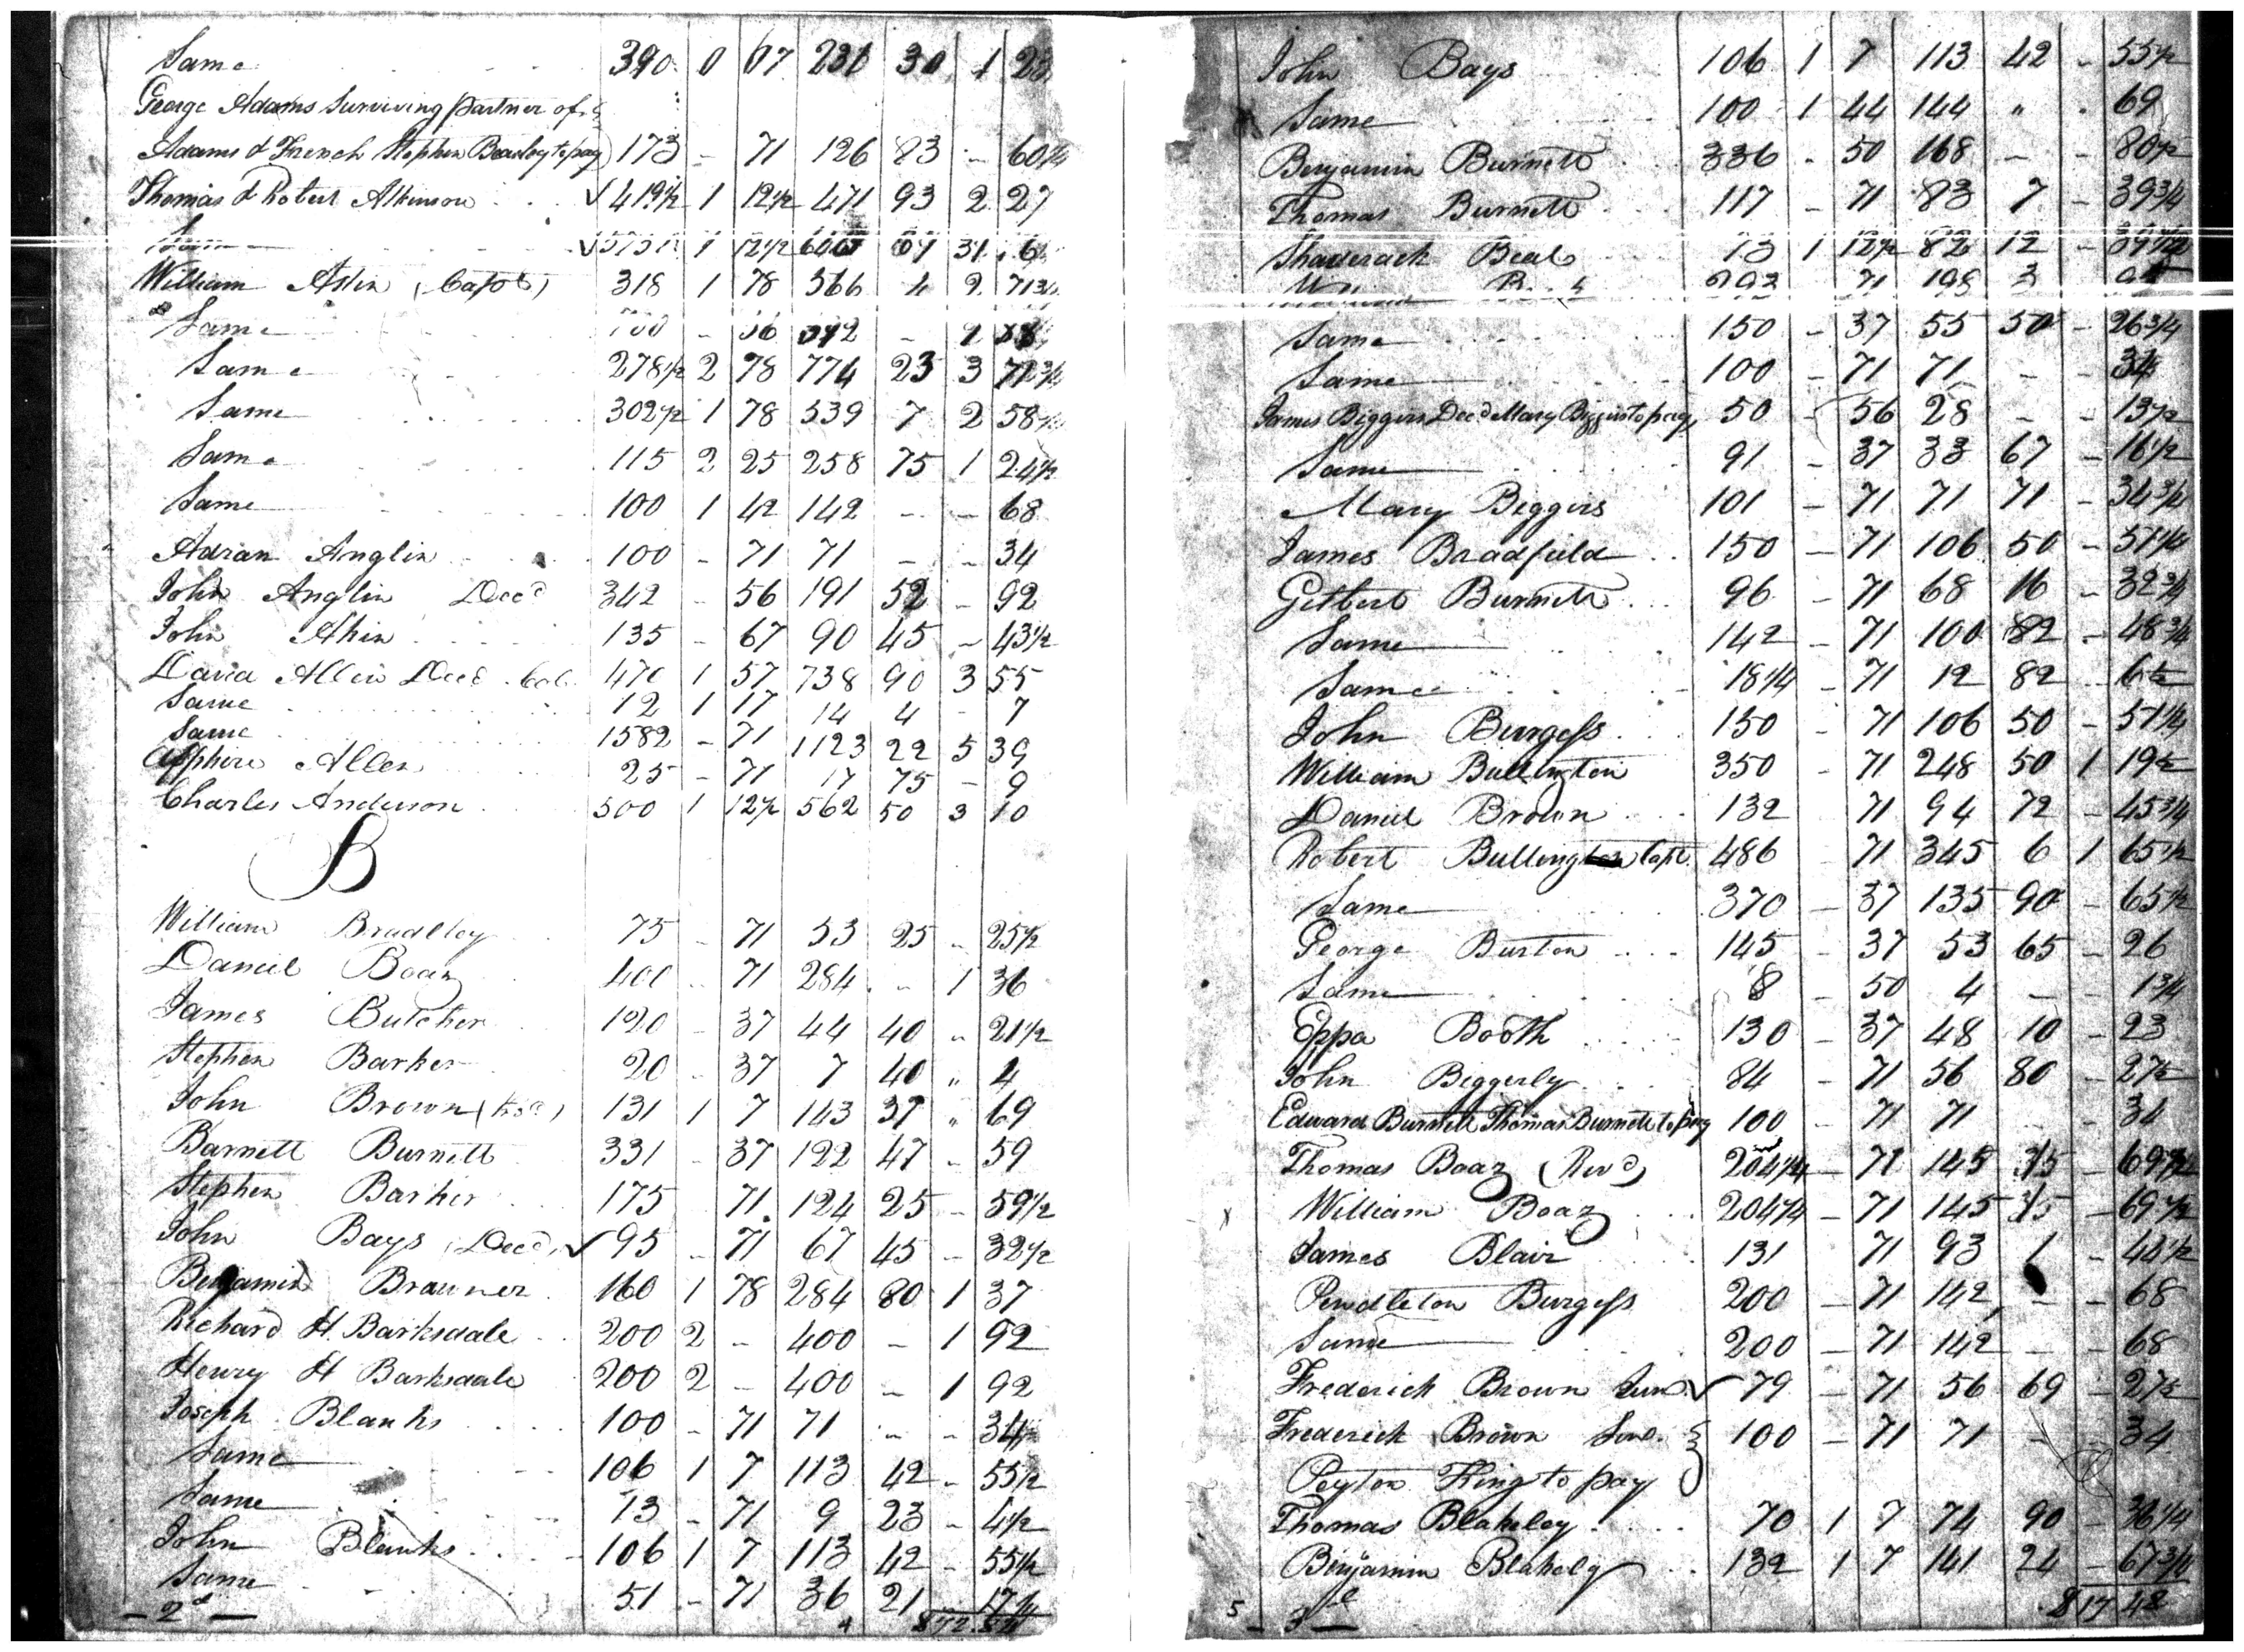 Same 390 0 67 261 30 1 23
George Adams Surviving partner of
Adams & French Stephen Beasley to pay 173 - 71 126 83 - 60 3/4
Thomas & Robert Atkinson ✓ 419 1/2 1 12 1/2 471 93 2 27
Same 1 12 1/2
William Aslin (Capt) 318 1 78 566 4 2 71 3/4
Same - 56 392 - 1 88
Same 278 1/2 2 78 774 23 3 72 3/4
Same 302 1/2 1 78 539 7 2 58
Same 115 2 25 258 75 1 24 1/2
Same 100 1 42 142 - - 68
Adran Anglin 100 - 71 71 - - 34
John Anglin Decd 342 - 56 191 52 - 92
John Akin 135 - 67 90 45 - 43 1/2
David Allen Decd Col. 470 1 57 738 90 3 55
Same 12 1 17 14 4 - 7
Same 1582 - 71 1123 22 5 39
Apphire Allen 25 - 71 17 75 - 9
Charles Anderson 500 1 12 1/2 562 50 3 10
B
William Bradley 75 - 71 53 25 - 25 1/2
Daniel Boaz 400 - 71 284 - 1 36
James Butcher 120 - 37 44 40 " 21 1/2
Stephen Barker 20 - 37 7 40 " 4
John Brown 131 1 7 143 37 " 69
Barnett Burnett 331 - 37 122 47 - 59
Stephen Barker 175 71 124 25 - 59 1/2
John Bays (Decd) ✓ 95 - 71 67 45 - 32 1/2
Benjamin Brawner 160 1 78 284 80 1 37
Richard H. Barksdale 200 2 - 400 - 1 92
Henry H Barksdale 200 2 - 400 - 1 92
Joseph Blanks 100 - 71 71 - - 34
Same 106 1 7 113 42 - 55 1/2
Same 13 - 71 9 23 - 4 1/2
John Blanks 106 1 7 113 42 - 55 1/2
Same 51 - 71 36 21 - 17 1/4
- 2d -
John Bays 106 1 7 113 42 - 55 1/2
Same 100 1 44 144 " - 69
Benjamin Burnett 336 - 50 168 - - 80 1/2
Thomas Burnett 117 - 71 83 7 - 39 3/4
Shaderack Beal 73 1 12 1/2 82 12 - 39 1/2
71 198 3
Same 150 - 37 55 50 - 26 3/4
Same 100 - 71 71 - - 34
James Biggers Decd Mary Biggers to pay 50 - 56 28 - - 13 1/2
Same 91 - 37 33 67 - 16 1/2
Mary Biggers 101 - 71 71 71 - 34 3/4
James Bradfield 150 - 71 106 50 - 51 1/4
Gilbert Burnett 96 - 71 68 16 - 32 3/4
Same 142 - 71 100 82 - 48 3/4
Same 18 1/4 - 71 12 82 - 6 1/2
John Burgess 150 - 71 106 50 - 51 1/4
William Bullington 350 - 71 248 50 1 19 1/2
Daniel Brown 132 71 94 72 - 45 3/4
Robert Bullington Capt. 486 - 71 345 6 1 65 1/2
Same 370 - 37 135 90 - 65 1/2
George Burton 145 - 37 53 65 - 26
Same 8 - 50 4 - - 1 3/4
Eppa Booth 130 - 37 48 10 - 23
John Biggerly 84 - 71 56 80 - 27 1/2
Edward Burnett Thomas Burnett to pay 100 - 71 71 - - 34
Thomas Boaz (Revd) 204 1/4 - 71 145 - 69 1/2
William Boaz 204 1/4 - 71 145 - 69 1/2
James Blair 131 71 93 1 - 44 1/2
Pendleton Burgess 200 - 71 142 - - 68
Same 200 - 71 142 - - 68
Frederick Brown Junr ✓ 79 - 71 56 69 - 27 1/2
Frederick Brown Senr. 100 - 71 71 - 34
Peyton King to pay
Thomas Blakeley 70 1 7 74 90 - 36 1/4
Benjamin Blakely 132 1 7 141 24 - 67 3/4
$17 48